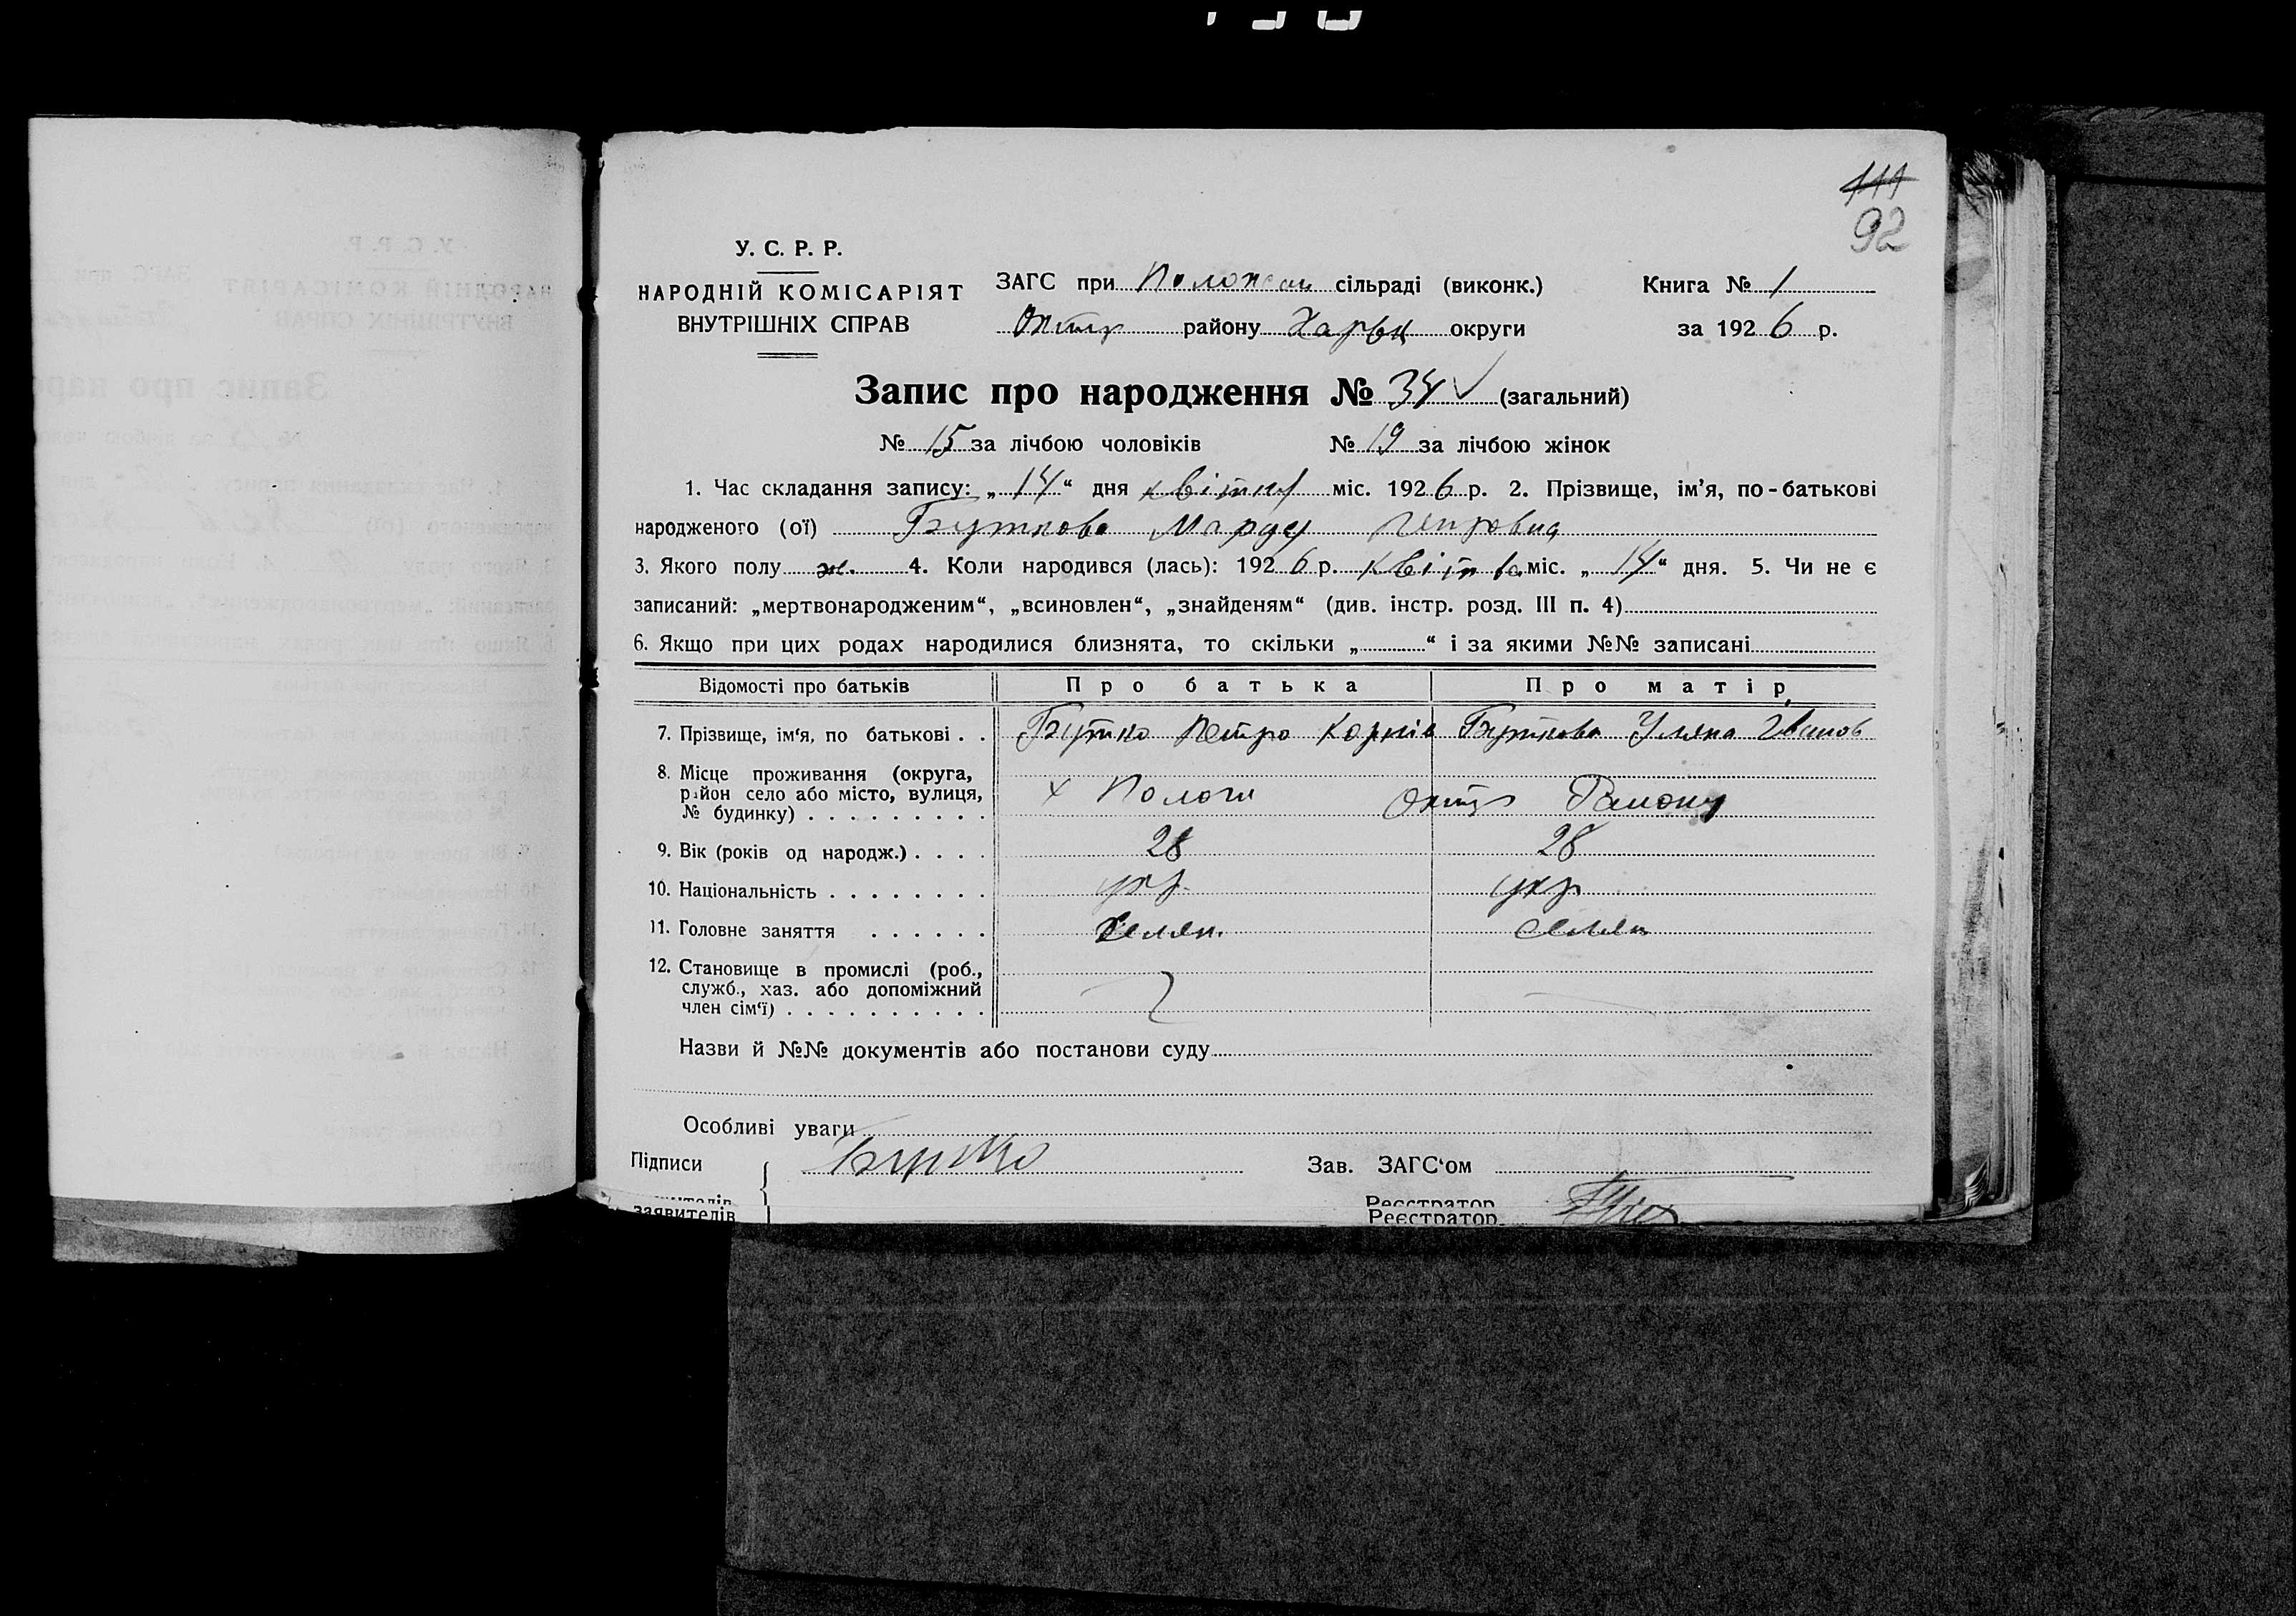 111
92
У. С. Р. Р.
НАРОДНІЙ КОМІСАРІЯТ
ВНУТРІШНІХ СПРАВ
ЗАГС при сільраді (виконк.)
Охтир району Харьк округи
Книга № 1
за 1926 р.
Запис про народження № 34 (загальний)
№ 15 за лічбою чоловіків № 19 за лічбою жінок
1. Час складання запису: „14“ дня квітня міс. 1926 р. 2. Прізвище, ім’я, по-батькові
народженого (ої) Буткова Петровна
3. Якого полу ж. 4. Коли народився (лась): 1926 р. міс. „14“ дня. 5. Чи не є
записаний: „мертвонародженим“, „всиновлен“, „знайденям“ (див. інстр. розд. III п. 4)
6. Якщо при цих родах народилися близнята, то скільки „ “ і за якими №№ записані
Відомості про батьків Про батька Про матір
7. Прізвище, ім‘я, по батькові . . Бутко Петро Корнів Буткова Уляна Іванов
8. Місце проживання (округа,
район село або місто, вулиця,
№ будинку) . . . . . . . . . х Пологи Охтир Району
9. Вік (років од народж.) . . . . 28 28
10. Національність . . . . . . . . укр. укр
11. Головне заняття . . . . . . Селян. селян
12. Становище в промислі (роб.,
служб., хаз. або допоміжний
член сім‘ї) . . . . . . . . . .
Назви й №№ документів або постанови суду
Особливі уваги
Підписи Бутко Зав. ЗАГС‘ом
заявителів Реєстратор
Реєстратор